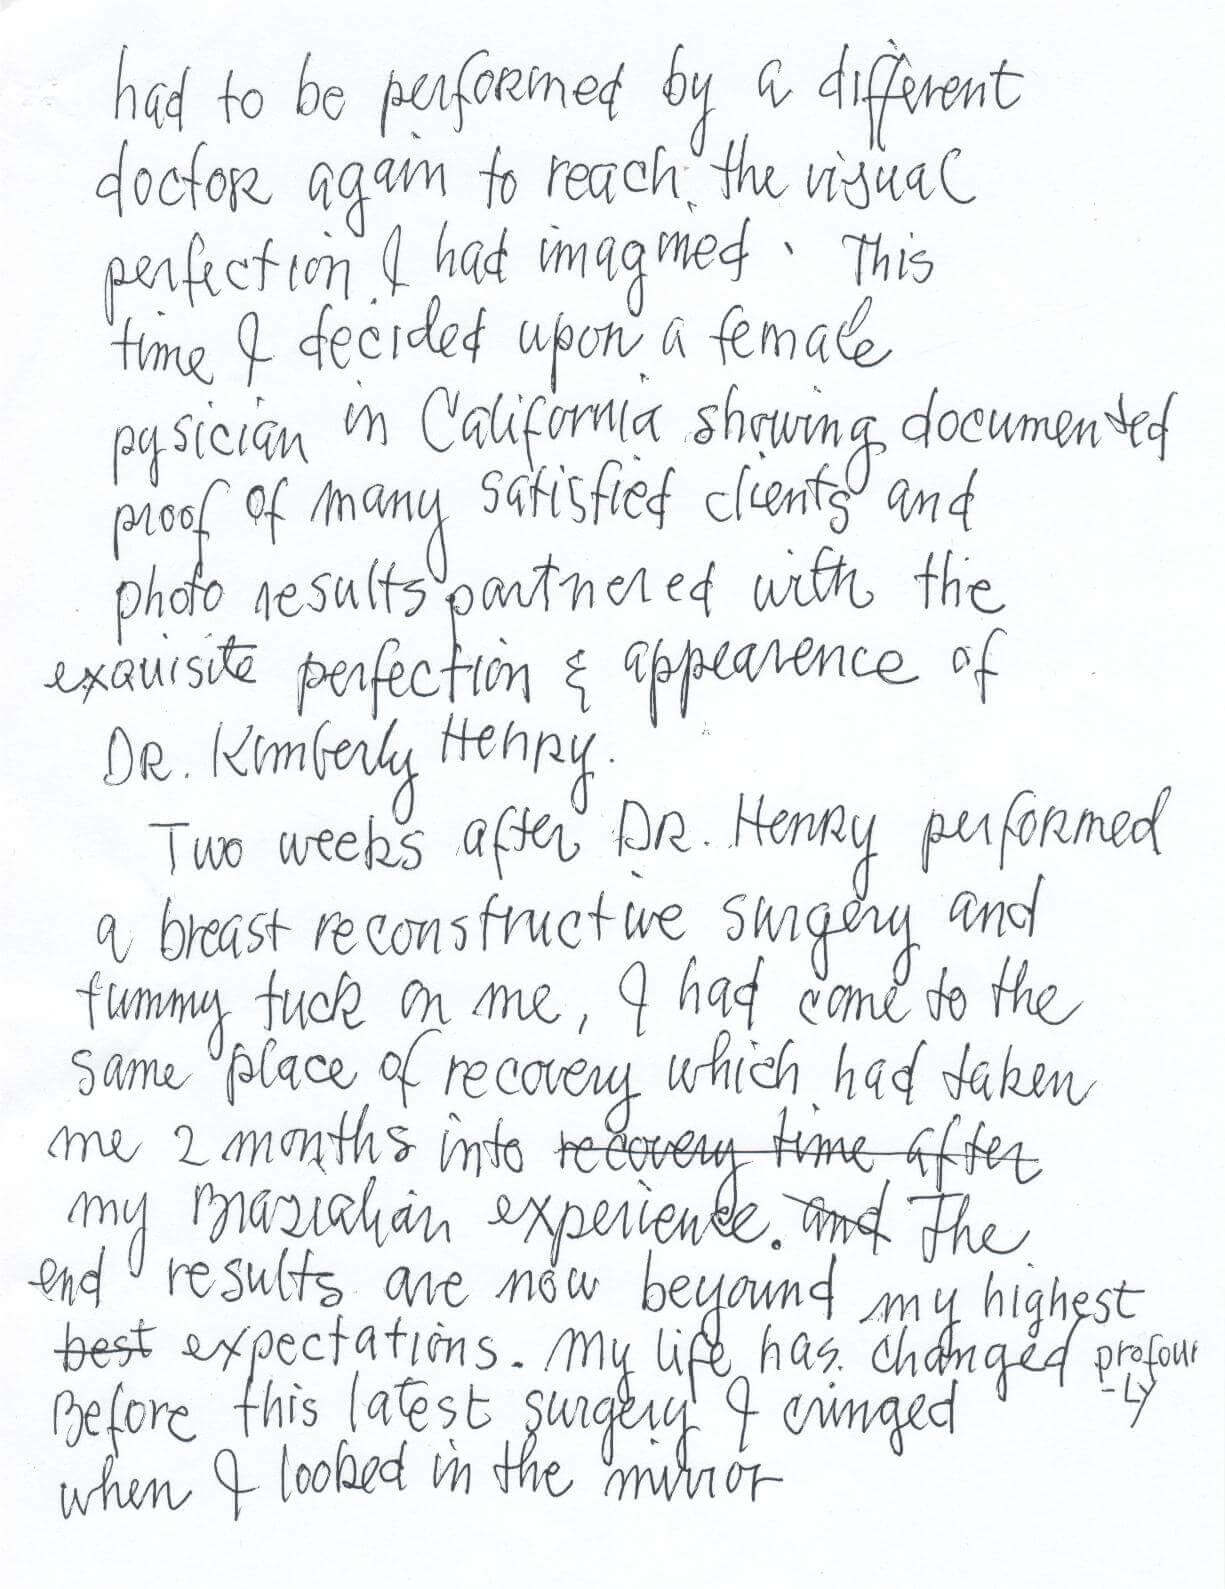 had to be performed by a different
doctor again to reach the visual
perfection I had imagined. This
time I decided upon a female
pysician in California showing documented
proof of many satisfied clients and
photo results partnered with the
exquisite perfection & appearence of
DR. Kimberly Henry.
Two weeks after DR. Henry performed
a breast reconstructive surgery and
tummy tuck on me, I had come to the
same place of recovery which had taken
me 2 months into recovery time after
my Brazialian experience. and The
end results are now beyound my highest
best expectations. My life has changed profour
-LY
Before this latest surgery I cringed
when I looked in the mirror